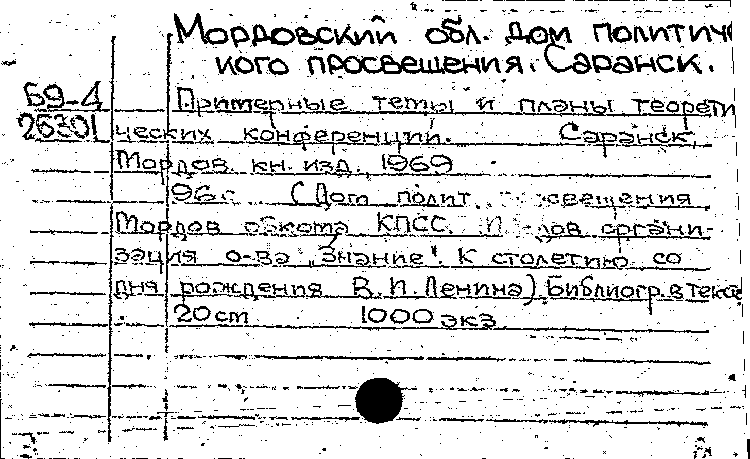 Мордовский обл. Дом политиче
кого просвещения. Саранск.
Б9-4 Примерные темы и планы теорети
26301 ческих конференций. Саранск,
Мордов. кн. изд., 1969
96 с. (Дом полит.
Мордов обкома КПСС. органи-
зация о-ва "Знание". К столетию со
дня рождения В.И. Ленина). Библиогр. в тексте
20 cm 1000 экз